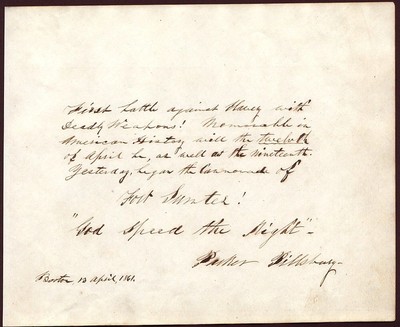 First battle against Slavery with
Deadly Weapons! Memorable in
American History, will the twelfth
of April be, as well as the nineteenth.
Yesterday, began the Cannonade of
Fort Sumter!
"God Speed the Right"-
Parker Pillsbury-
Boston 13 April, 1861.